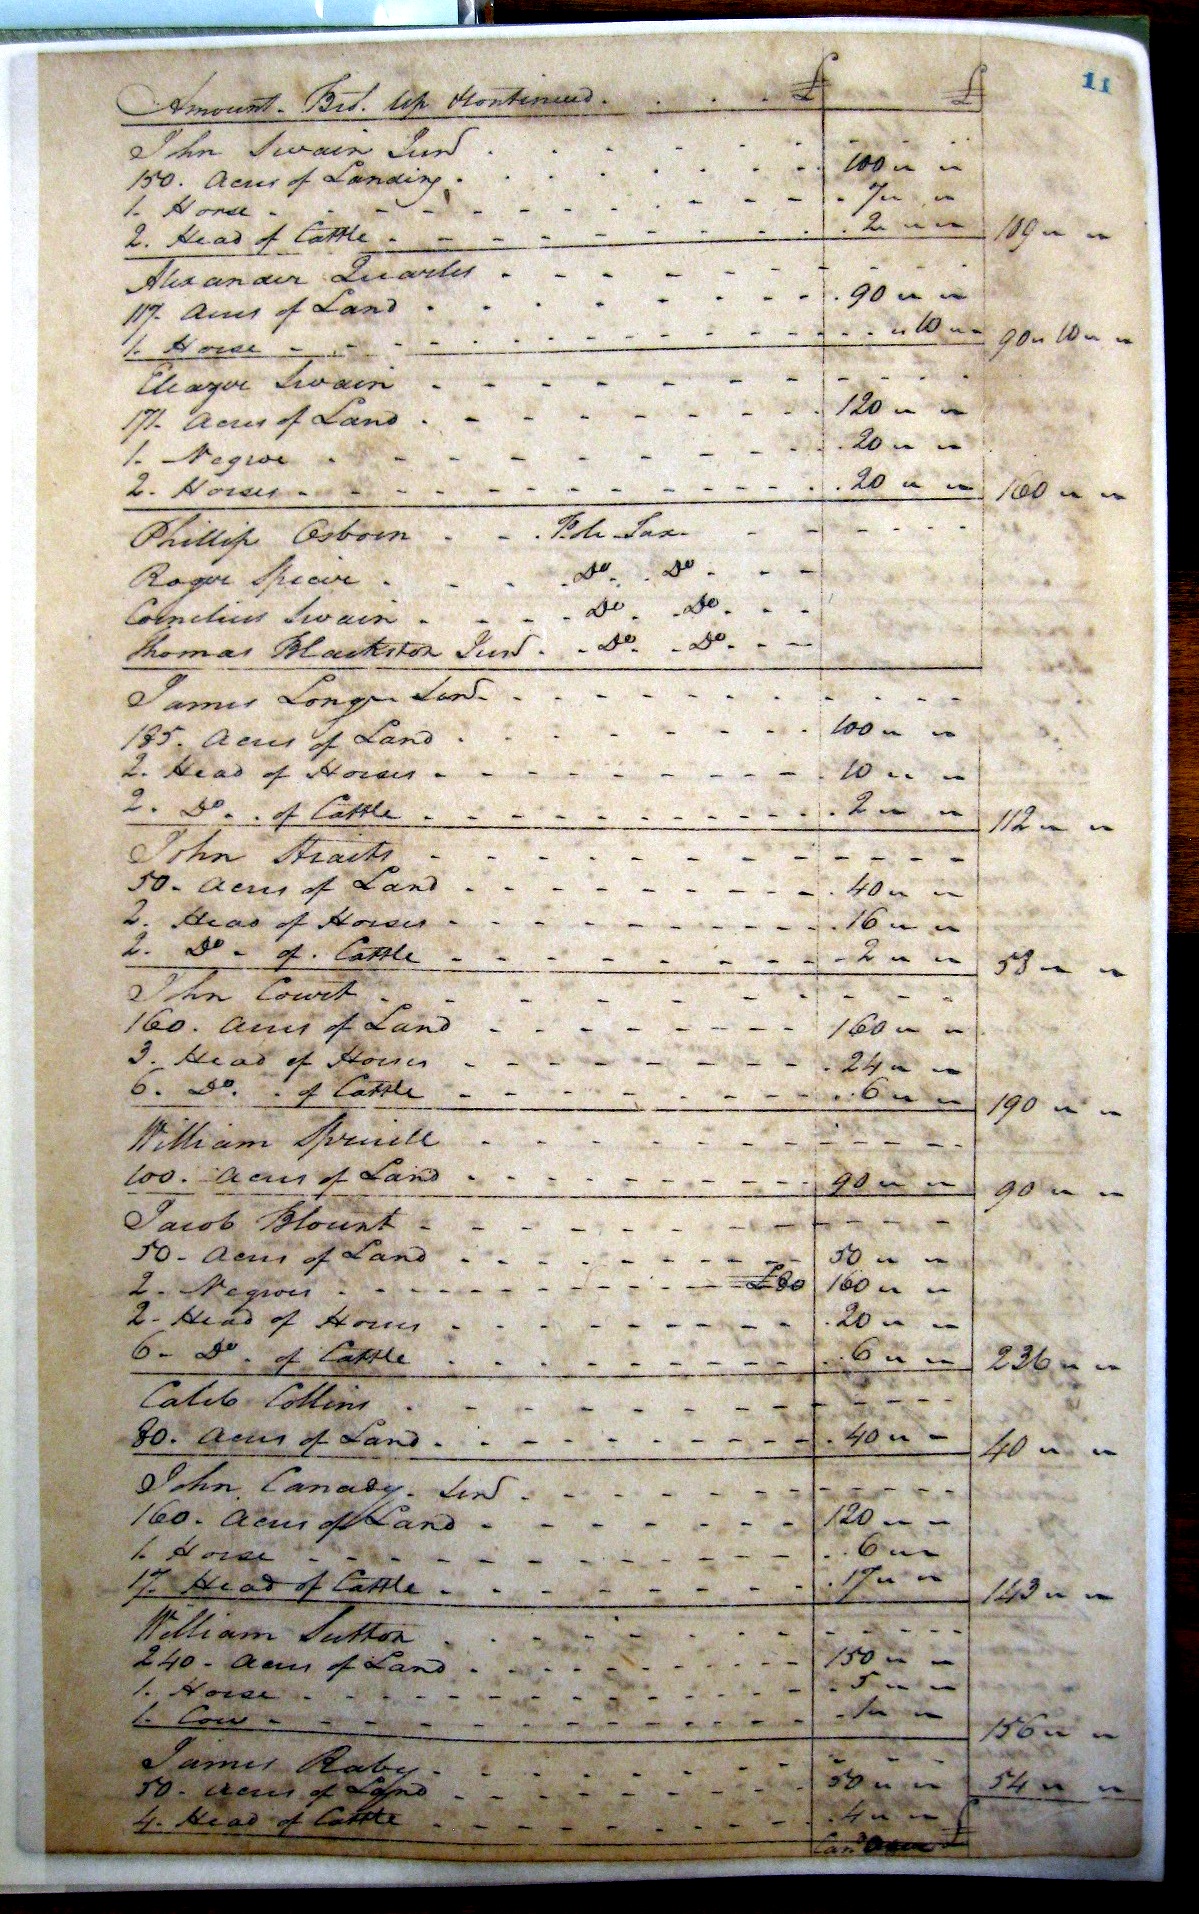 11
Amount. Brt. Up Continued. £ £
John Swain Junr
150. Acres of Landing. 100 " "
1. Horse 7 " "
2. Head of Cattle 2 " " 109 " "
Alexander Quarles
117. Acres of Land 90 " "
1. Horse " 10 " 90 " 10 " "
Eleazor Swain
171. Acres of Land 120 " "
1. Negroe 20 " "
2. Horses 20 " " 160 " "
Phillip Osborn Pole Tax
Roger Do Do
Cornelius Swain Do Do
Thomas Blackston Junr Do Do
James Long Senr
185. Acres of Land 100 " "
2. Head of Horses 10 " "
2. Do. of Cattle 2 " " 112 " "
John
50. Acres of Land 40 " "
2. Head of Horses 16 " "
2. Do. of Cattle 2 " " 58 " "
John
160. Acres of Land 160 " "
3. Head of Horses 24 " "
6. Do. of Cattle 6 " " 190 " "
William Spruill
100. Acres of Land 90 " " 90 " "
Jacob Blount
50. Acres of Land 50 " "
2. Negroes £80 160 " "
2. Head of Horses 20 " "
6. Do. of Cattle 6 " " 236 " "
Caleb Collins
80. Acres of Land 40 " " 40 " "
John Canady. Senr
160. Acres of Land 120 " "
1. Horse 6 " "
17. Head of Cattle 17 " " 143 " "
William Sutton
240. Acres of Land 150 " "
1. Horse 5 " "
1. Cow 1 " " 156 " "
James Raby
50. Acres of Land 50 " " 54 " "
4. Head of Cattle 4 " "
Card Over £